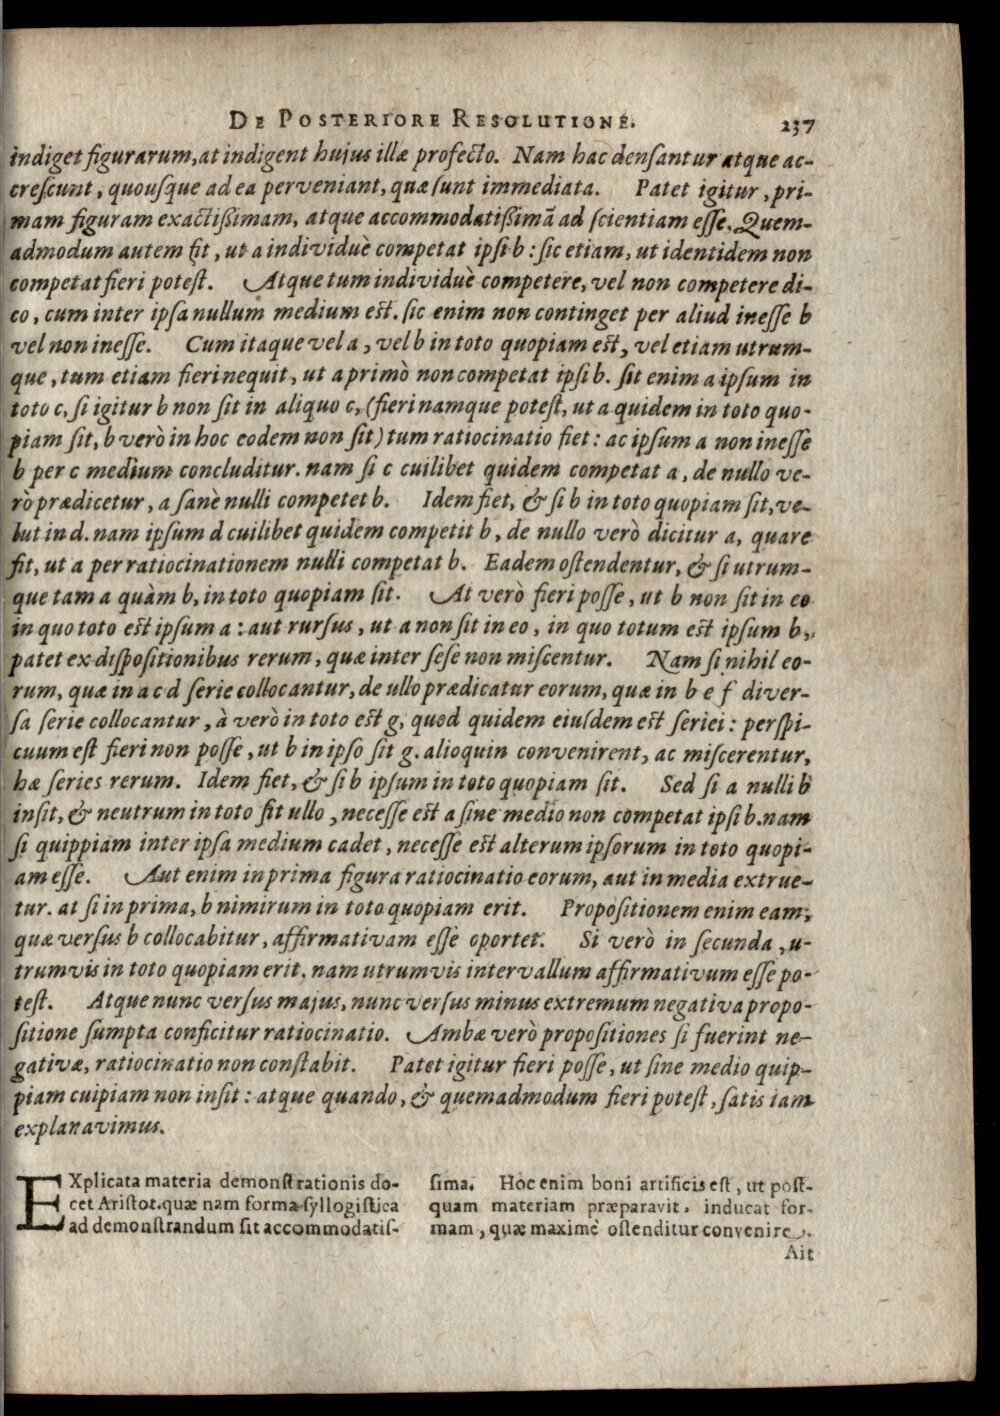 De Posteriore Resolutione. 237
indiget figurarum, at indigent hujus illæ profecto. Nam hac densantur atque ac-
crescunt, quousque ad ea perveniant, quæ sunt immediata. Patet igitur, pri-
mam figuram exactißimam, atque accommodatißimā ad scientiam esse. Quem-
admodum autem fit, ut a individuè competat ipsi b : sic etiam, ut identidem non
competat fieri potest. Atque tum individuè competere, vel non competere di-
co, cum inter ipsa nullum medium est. sic enim non continget per aliud inesse b
vel non inesse. Cum itaque vel a, vel b in toto quopiam est, vel etiam utrum-
que, tum etiam fieri nequit, ut a primò non competat ipsi b. sit enim a ipsum in
toto c, si igitur b non sit in aliquo c, (fieri namque potest, ut a quidem in toto quo-
piam sit, b verò in hoc eodem non sit) tum ratiocinatio fiet : ac ipsum a non inesse
b per c medium concluditur. nam si c cuilibet quidem competat a, de nullo ve-
rò prædicetur, a sanè nulli competet b. Idem fiet, & si b in toto quopiam sit, ve-
lut in d. nam ipsum d cuilibet quidem competit b, de nullo verò dicitur a, quare
fit, ut a per ratiocinationem nulli competat b. Eadem ostendentur, & si utrum-
que tam a quàm b, in toto quopiam sit. At verò fieri posse, ut b non sit in eo
in quo toto est ipsum a : aut rursus, ut a non sit in eo, in quo totum est ipsum b,
patet ex dispositionibus rerum, quæ inter sese non miscentur. Nam si nihil eo-
rum, quæ in a c d serie collocantur, de ullo prædicatur eorum, quæ in b e f diver-
sa serie collocantur, à verò in toto est g, quod quidem eiusdem est seriei : perspi-
cuum est fieri non posse, ut b in ipso sit g. alioquin convenirent, ac miscerentur,
hæ series rerum. Idem fiet, & si b ipsum in toto quopiam sit. Sed si a nulli b
insit, & neutrum in toto sit ullo, necesse est a sine medio non competat ipsi b. nam
si quippiam inter ipsa medium cadet, necesse est alterum ipsorum in toto quopi-
am esse. Aut enim in prima figura ratiocinatio eorum, aut in media extrue-
tur. at si in prima, b nimirum in toto quopiam erit. Propositionem enim eam,
quæ versus b collocabitur, affirmativam esse oportet. Si verò in secunda, u-
trumvis in toto quopiam erit. nam utrumvis intervallum affirmativum esse po-
test. Atque nunc versus majus, nunc versus minus extremum negativa propo-
sitione sumpta conficitur ratiocinatio. Ambæ verò propositiones si fuerint ne-
gativæ, ratiocinatio non constabit. Patet igitur fieri posse, ut sine medio quip-
piam cuipiam non insit : atque quando, & quemadmodum fieri potest, satis iam
explanavimus.
EXplicata materia demonstrationis do-
cet Aristot. quæ nam forma syllogistica
ad demonstrandum sit accommodatis-
sima. Hoc enim boni artificis est, ut post-
quam materiam præparavit, inducat for-
mam, quæ maximè ostenditur convenire.
Ait